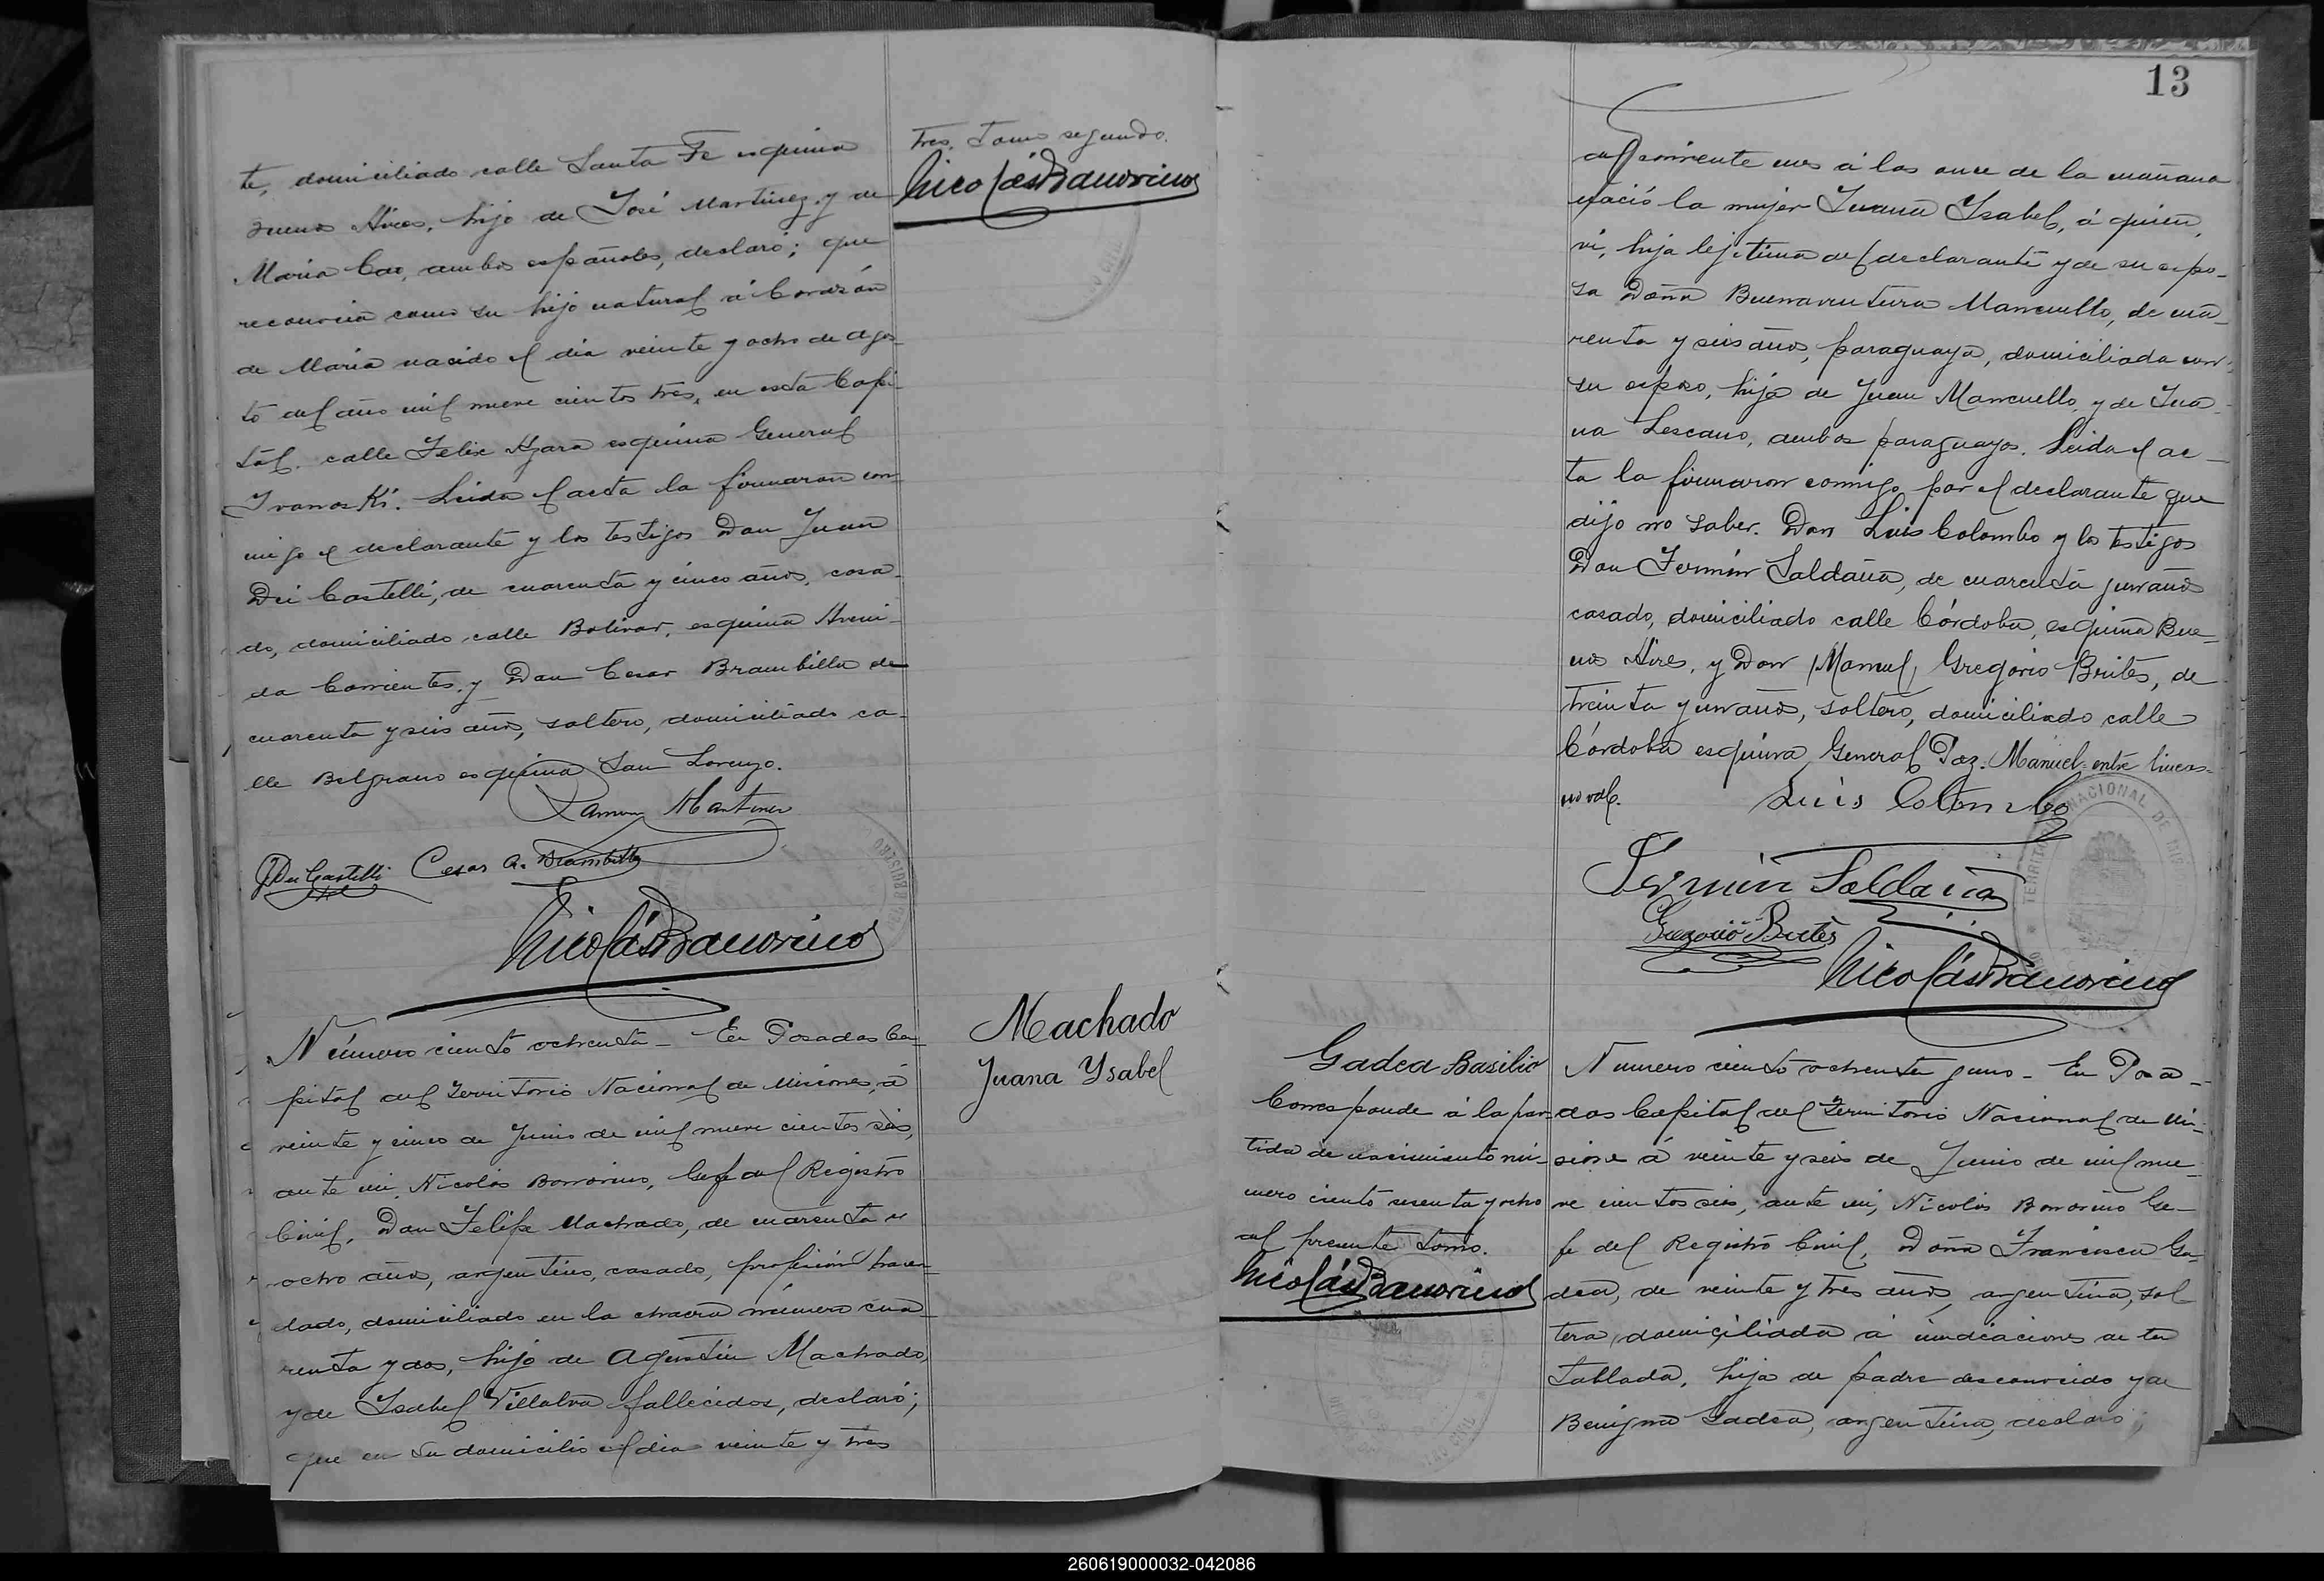 te, domiciliado calle Santa Fe esquina
Buenos Aires, hijo de José Martinez y de
Maria Cao, ambos españoles, declaró; que
reconocia como su hijo natural á Corazón
de Maria nacido el dia veinte y ocho de Agos-
to del año mil nueve cientos tres, en esta Capi-
tal, calle Felix Azara esquina General
Ivanoski. Leida el acta la firmaron con-
migo el declarante y los testigos Don Juan
Dei Castelli, de cuarenta y cinco años, casa-
do, domiciliado calle Bolivar, esquina Aveni-
da Corrientes, y Don Cesar Brambilla de
cuarenta y seis años, soltero, domiciliado ca-
lle Belgrano esquina San Lorenzo.
Ramon Martinez
J Dei Castelli Cesar A. Brambilla
Nicolás Borrorino
Número ciento ochenta - En Posadas Ca-
pital del Territorio Nacional de Misiones, á
veinte y cinco de Junio de mil nueve cientos seis,
ante mi, Nicolás Borrorino, Gefe del Registro
Civil, Don Felipe Machado, de cuarenta y
ocho años, argentino, casado, profesión hacen-
dado, domiciliado en la chacra número cua-
renta y dos, hijo de Agustin Machado,
y de Isabel Villalva fallecidos, declaró;
que en su domicilio el dia veinte y tres
tres, Tomo segundo.
Nicolás Borrorino
Machado
Juana Ysabel
13
del corriente mes á las once de la mañana
nació la mujer Juana Isabel, á quien,
vi, hija lejitima del declarante y de su espo-
sa Doña Buenaventura Mancuello, de cua-
renta y seis años, paraguaya, domiciliada con
su esposo, hija de Juan Mancuello, y de Jua-
na Lescano, ambos paraguayos. Leida el ac-
ta la firmaron conmigo por el declarante que
dijo no saber. Don Luis Colombo y los testigos
Don Fermin Saldaña, de cuarenta y un años
casado, domiciliado calle Córdoba, esquina Bue-
nos Aires, y Don Manuel, Gregorio Brites, de
treinta y un años, soltero, domiciliado calle
Córdoba esquina General Paz. Manuel - entre lineas -
no vale.
Luis Colombo
Fermin Saldaña
Gregorio Brites
Nicolás Borrorino
Gadea Basilio
Corresponde á la par-
tida de nacimiento nú-
mero ciento sesenta y ocho
del presente tomo.
Nicolás Borrorino
Numero ciento ochenta y uno - En Posa-
das Capital del Territorio Nacional de Mi-
siones á veinte y seis de Junio de mil nue-
ve cientos seis, ante mi, Nicolás Borrorino Ge-
fe del Registro Civil, Doña Francisca Ga-
dea, de veinte y tres años, argentina, sol
tera, domiciliada á inmediaciones de la
Tablada, hija de padre desconocido y de
Benigna Gadea, argentina, declaró;
260619000032-042086